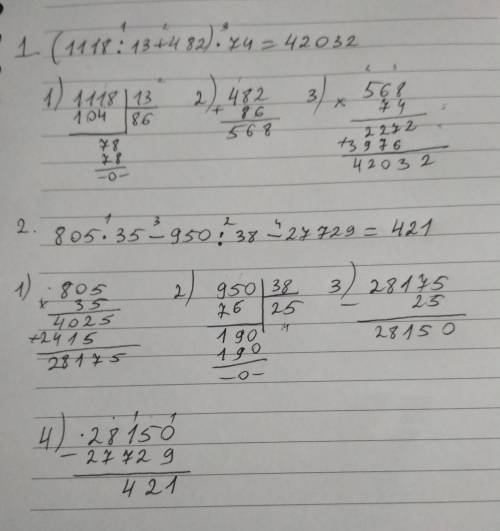 1. (1118 : 13 + 482) · 74 = 42032
1) 1118 | 13   2) 482   3) 568
104 | 86   + 86   × 74
78   568   2272
78   + 3976
-0-   42032
2. 805 · 35 - 950 : 38 - 27729 = 421
1) 805   2) 950 | 38   3) 28175
× 35   76 | 25   - 25
4025   190   28150
+ 2415   190
28175   -0-
4) 28150
- 27729
421